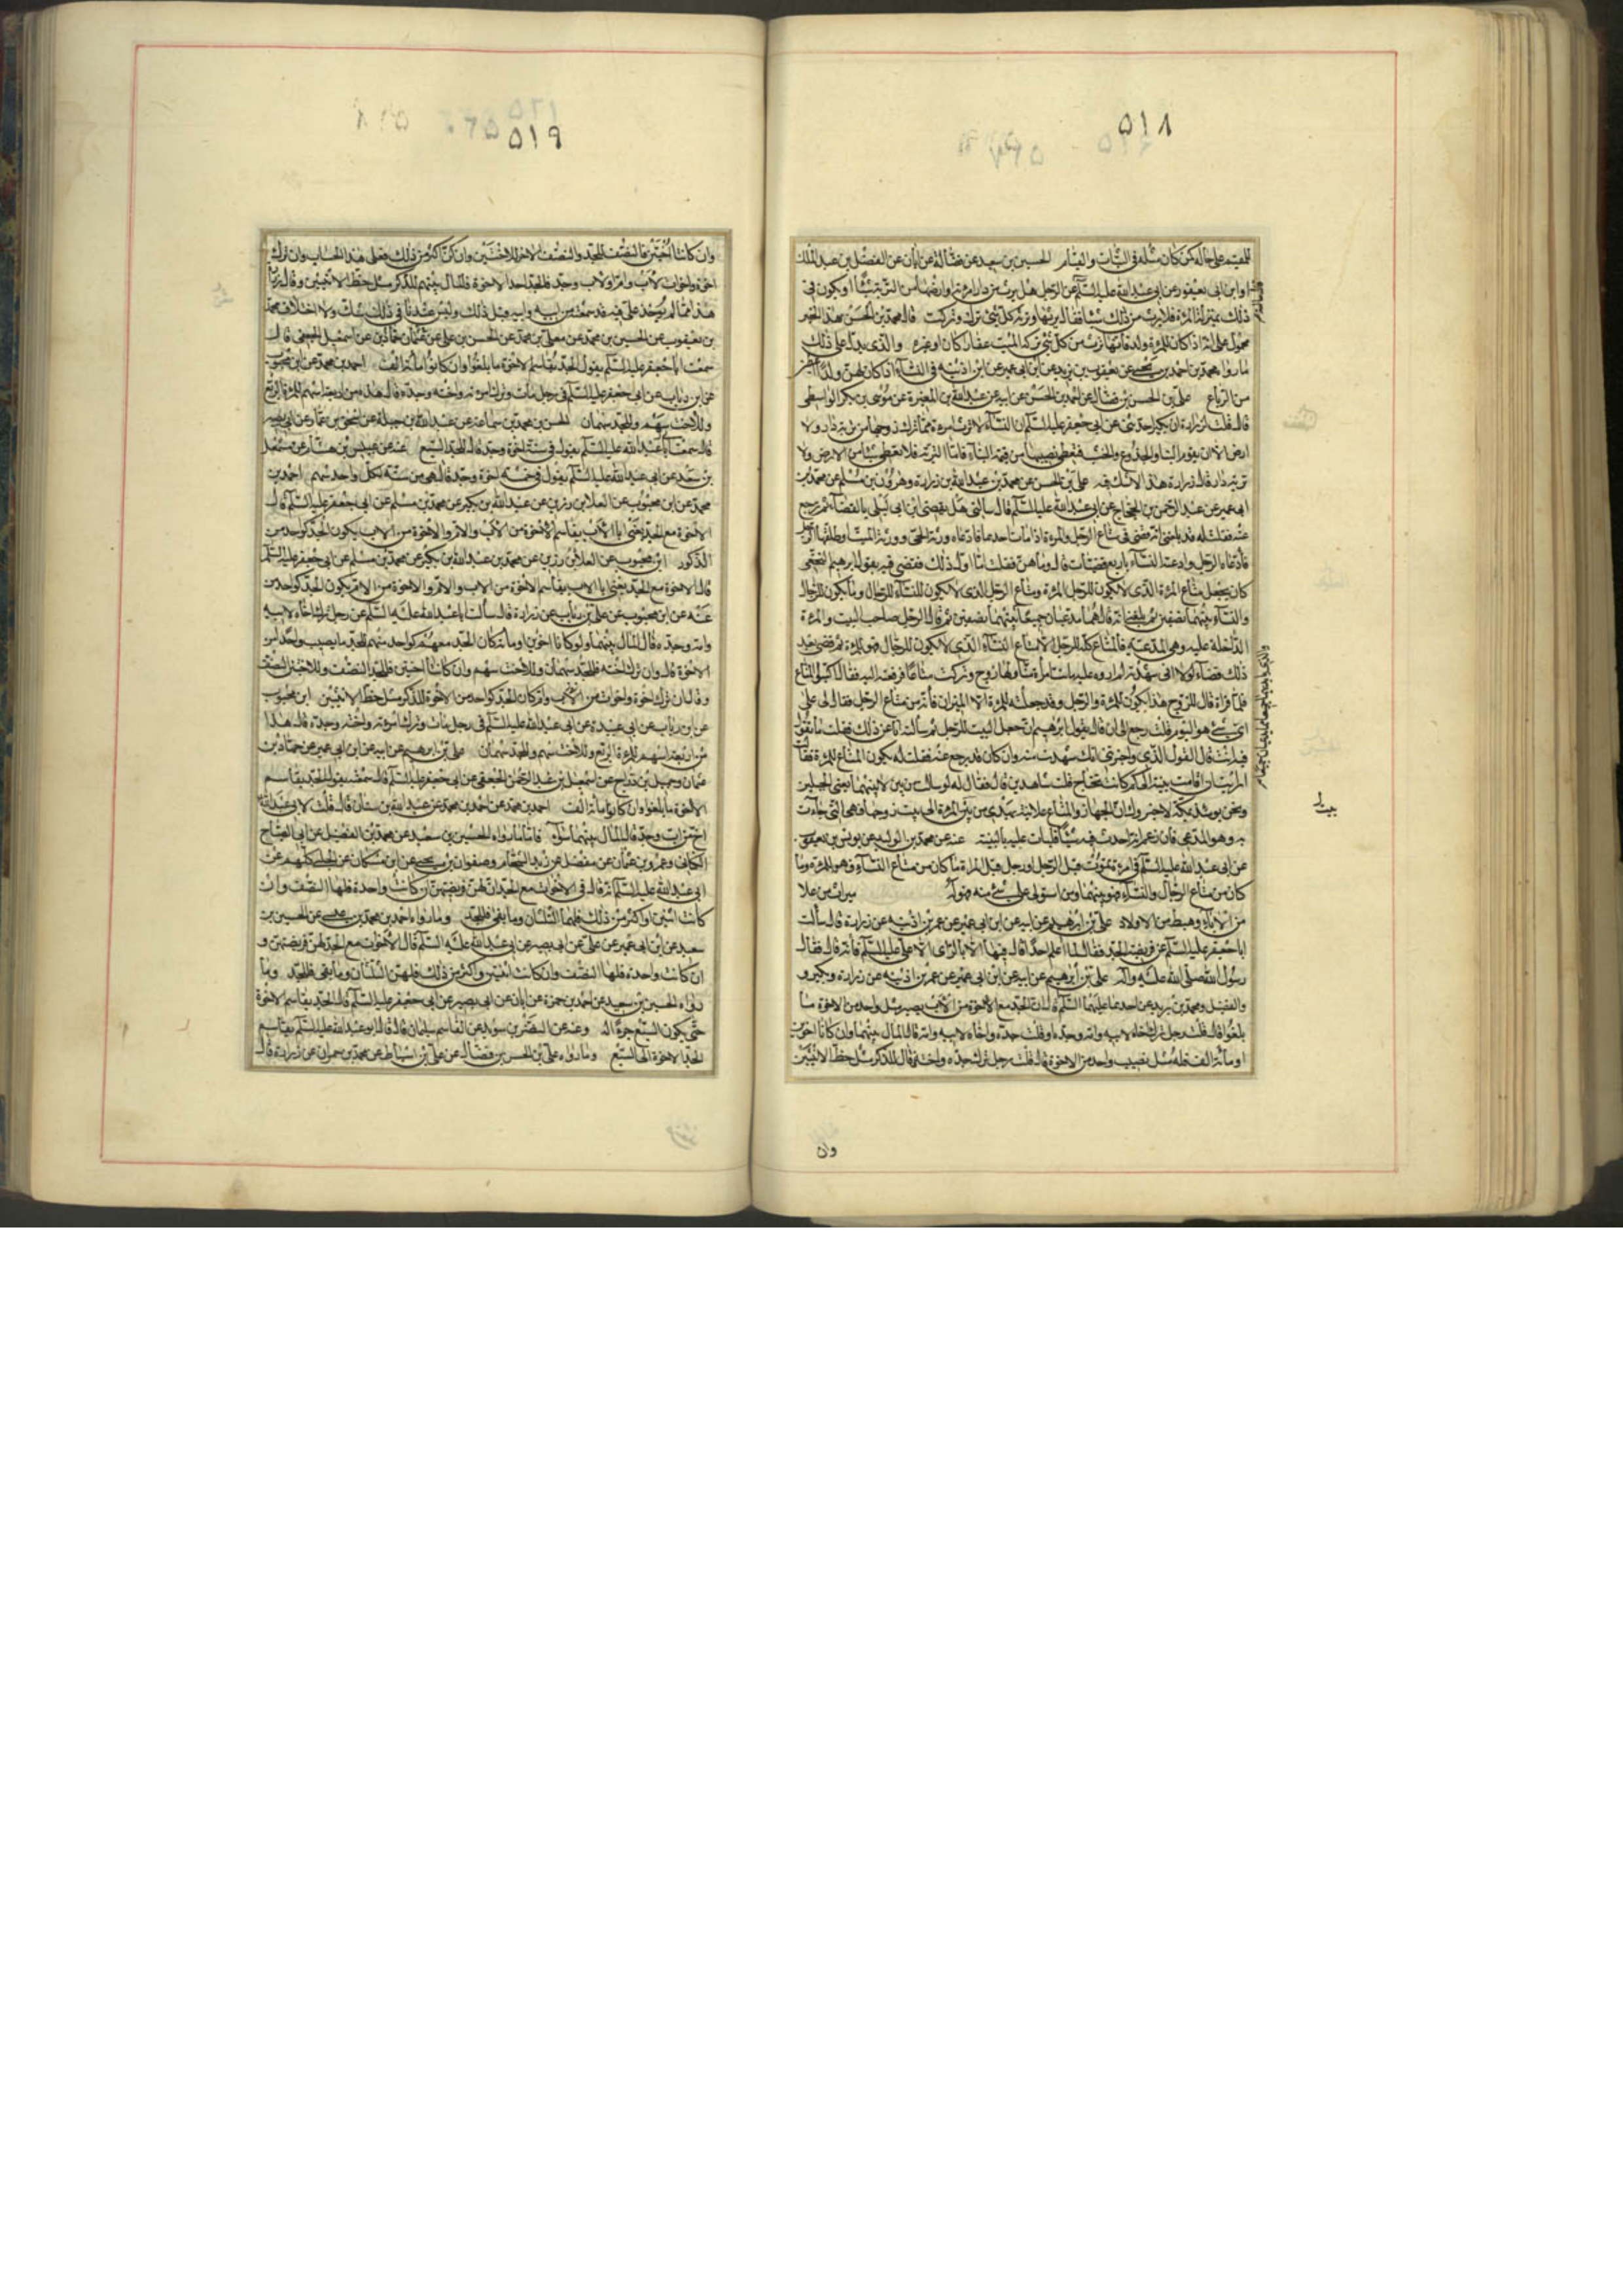 ٥١٨
للقيم على حاله كون كان مثله في الثبات والقيام الحسين بن سعيد عن فضالة عن ابان عن الفضل بن عبد الملك
او ابن ابي يعفور عن ابي عبد الله عليه السلام عن الرجل هل يرث من دار امرأته او ارضها من التربة شيئا او يكون في
ذلك بمنزلة المرأة فلا يرث من ذلك شيئا فقال يرثها وترثه كل شيء ترك وتركت قال محمد بن الحسن هذا الخبر
محمول على انه اذا كان للمرأة ولد فانها ترث من كل شيء تركه الميت عقارا كان او غيره والذي يدل على ذلك
ما رواه محمد بن احمد بن يحيى عن يعقوب بن يزيد عن ابن ابي عمير عن ابن اذينة في النساء اذا كان لهن ولد اعطين
من الرباع علي بن الحسن بن فضال عن احمد بن الحسن عن ابيه عن عبد الله بن المغيرة عن موسى بن بكر الواسطي
قال قلت لزرارة ان بكيرا حدثني عن ابي جعفر عليه السلام ان النساء لا ترث امرأة مما ترك زوجها من تربة دار ولا
ارض الا ان يقوم البناء والجذوع والخشب فتعطى نصيبها من قيمة البناء فاما التربة فلا تعطى شيئا من الارض ولا
تربة دار قال زرارة هذا لا شك فيه علي بن الحسن عن محمد بن عبد الله بن زرارة وهرون بن مسلم عن محمد بن
ابي عمير عن عبد الرحمن بن الحجاج عن ابي عبد الله عليه السلام قال سألني هل يقضي ابن ابي ليلى بالقضاء ثم يرجع
عنه فقلت له قد بلغني انه قضى في متاع الرجل والمرأة اذا مات احدهما فادعاه ورثة الحي وورثة الميت او طلقها الرجل
فادعاه الرجل وادعته النساء باربع قضيات قال وما هن فقلت اما اول ذلك فقضى فيه بقول ابرهيم النخعي
كان يجعل متاع المرأة الذي لا يكون للرجل للمرأة ومتاع الرجل الذي لا يكون للنساء للرجال وما يكون للرجال
والنساء بينهما نصفين ثم بلغني انه قال هما مدعيان جميعا بينهما نصفين ثم قال الرجل صاحب البيت والمرأة
الداخلة عليه وهي المدعية فالمتاع كله للرجل الا متاع النساء الذي لا يكون للرجال فهو للمرأة ثم قضى بعد
ذلك بقضاء لولا اني شهدته لم اروه عليه ماتت امرأة منا ولها زوج وتركت متاعا فرفعته اليه فقال اكتبوا المتاع
فلما قرأه قال للزوج هذا يكون للمرأة والرجل وقد جعلته للمرأة الا الميزان فانه من متاع الرجل فقال لي على
اي شيء هو اليوم قلت رجع الى ان قال بقول ابرهيم ان جعل البيت للرجل ثم سألته انا عن ذلك فقلت ما تقول
فيه انت قال القول الذي واخبرتني انك شهدت منه وان كان قد رجع عنه فقلت له يكون المتاع للمرأة فقال
ارأيت ان اقامت بينة الى كم كانت تحتاج قلت شاهدين قال فقال له لو سألت من بين لابتيها يعني الجبلين
ونحن يومئذ بمكة لاخبروك ان الجهاز والمتاع علانية يهدى من بيت المرأة الى بيت زوجها وهي التي جاءت
به وهو المدعي فان زعم انه احدث فيه شيئا فليأت عليه بالبينة عنه عن محمد بن الوليد عن يونس بن يعقوب
عن ابي عبد الله عليه السلام في امرأة تموت قبل الرجل او رجل قبل المرأة قال ما كان من متاع النساء فهو للمرأة وما
كان من متاع الرجال والنساء فهو بينهما ومن استولى على شيء منه فهو له ميراث من علا
من الاباء وهبط من الاولاد علي بن ابرهيم عن ابيه عن ابن ابي عمير عن عمر بن اذينة عن زرارة قال سألت
ابا جعفر عليه السلام عن فريضة الجد فقال ما اعلم احدا قال فيها الا بالرأي الا علي عليه السلام فانه قال فقال
رسول الله صلى الله عليه وآله علي بن ابرهيم عن ابيه عن ابن ابي عمير عن عمر بن اذينة عن زرارة وبكير و
والفضيل ومحمد بن بريد عن احدهما عليهما السلام قال ان الجد مع الاخوة من الاب يصير مثل واحد من الاخوة ما
بلغوا قال قلت رجل ترك اخاه لابيه وامه وجده او قلت جده واخاه لابيه وامه قال المال بينهما وان كانا اخوين
او مائة الف فله مثل نصيب واحد من الاخوة قال قلت رجل ترك جده واخته قال للذكر مثل حظ الانثيين
وان
٥١٩
وان كانتا اختين فالنصف للجد والنصف الاخر للاختين وان كن اكثر من ذلك فعلى هذا الحساب وان ترك
اخوة واخوات لاب وام او لاب وجد فالجد احد الاخوة فالمال بينهم للذكر مثل حظ الانثيين وقال زرارة
هذا مما لم يؤخذ علي فيه قد سمعته من ابيه وابيه قبل ذلك وليس عندنا في ذلك شك ولا اختلاف محمد
بن يعقوب عن الحسين بن محمد عن معلى بن محمد عن الحسن بن علي عن حماد بن عثمان عن اسمعيل الجعفي قال
سمعت ابا جعفر عليه السلام يقول الجد يقاسم الاخوة ما بلغوا وان كانوا مائة الف احمد بن محمد عن ابن محبوب
عن ابن رياب عن ابي جعفر عليه السلام في رجل مات وترك امرأته واخته وجده قال هذه من اربعة اسهم للمرأة الربع
وللاخت سهم وللجد سهمان الحسن بن محمد بن سماعة عن عبد الله بن جبلة عن اسحق بن عمار عن ابي بصير
قال سمعت ابا عبد الله عليه السلام يقول في ستة اخوة وجد قال للجد السبع عنه عن عبيس بن هشام عن مشمعل
بن سعد عن ابي عبد الله عليه السلام يقول في خمسة اخوة وجد قال هي من ستة لكل واحد سهم احمد بن
محمد عن ابن محبوب عن العلا بن رزين عن عبد الله بن بكير عن محمد بن مسلم عن ابي جعفر عليه السلام قال
الاخوة مع الجد يعني ابا الاب يقاسم الاخوة من الاب والام والاخوة من الاب يكون الجد كواحد من
الذكور ابن محبوب عن العلا بن رزين عن محمد بن عبد الله بن بكير عن محمد بن مسلم عن ابي جعفر عليه السلام
قال الاخوة مع الجد يعني ابا الاب يقاسم الاخوة من الاب والام والاخوة من الام يكون الجد كواحد من
عنه عن ابن محبوب عن علي بن رياب عن زرارة قال سألت ابا عبد الله عليه السلام عن رجل ترك اخاه لابيه
وامه وجده قال المال بينهما ولو كانا اخوين او مائة كان الجد معهم كواحد منهم للجد ما يصيب واحدا من
الاخوة قال وان ترك اخته فللجد سهمان وللاخت سهم وان كانتا اختين فللجد النصف وللاختين النصف
وقال ان ترك اخوة واخوات من الاب وام كان الجد كواحد من الاخوة للذكر مثل حظ الانثيين ابن محبوب
عن ابن رياب عن ابي عبيدة عن ابي عبد الله عليه السلام في رجل مات وترك امرأته واخته وجده قال هذا
من اربعة اسهم للمرأة الربع وللاخت سهم وللجد سهمان علي بن ابرهيم عن ابيه عن ابن ابي عمير عن حماد بن
عثمان وجميل بن دراج عن اسمعيل بن عبد الرحمن الجعفي عن ابي جعفر عليه السلام قال سمعته يقول الجد يقاسم
الاخوة ما بلغوا وان كانوا مائة الف احمد بن محمد عن احمد بن محمد عن عبد الله بن سنان قال قلت لابي عبد الله
اخ من اب وجد قال المال بينهما سواء فاما ما رواه الحسين بن سعيد عن محمد بن الفضيل عن ابي الصباح
الكناني وعمرو بن عثمان عن مفضل عن زيد الشحام وصفوان بن يحيى عن ابن مسكان عن الحلبي كلهم عن
ابي عبد الله عليه السلام انه قال في الاخوات مع الجد ان لهن فريضتهن ان كانت واحدة فلها النصف وان
كانت اثنتين او اكثر من ذلك فلهما الثلثان وما بقي فللجد وما رواه احمد بن محمد بن عيسى عن الحسين بن
سعيد عن ابن ابي عمير عن علي عن ابي بصير عن ابي عبد الله عليه السلام قال الاخوات مع الجد لهن فريضتهن و
ان كانت واحدة فلها النصف وان كانت اثنتين واكثر من ذلك فلهن الثلثان وما بقي فللجد وما
رواه الحسين بن سعيد عن احمد بن حمزة عن ابان عن ابي بصير عن ابي جعفر عليه السلام قال الجد يقاسم الاخوة
حتى يكون السبع خيرا له وعنه عن النضر بن سويد عن القاسم سليمان قال قال ابو عبد الله عليه السلام يقاسم
الجد الاخوة الى السبع وما رواه علي بن الحسن بن فضال عن علي بن اسباط عن محمد بن حمران عن زرارة قال